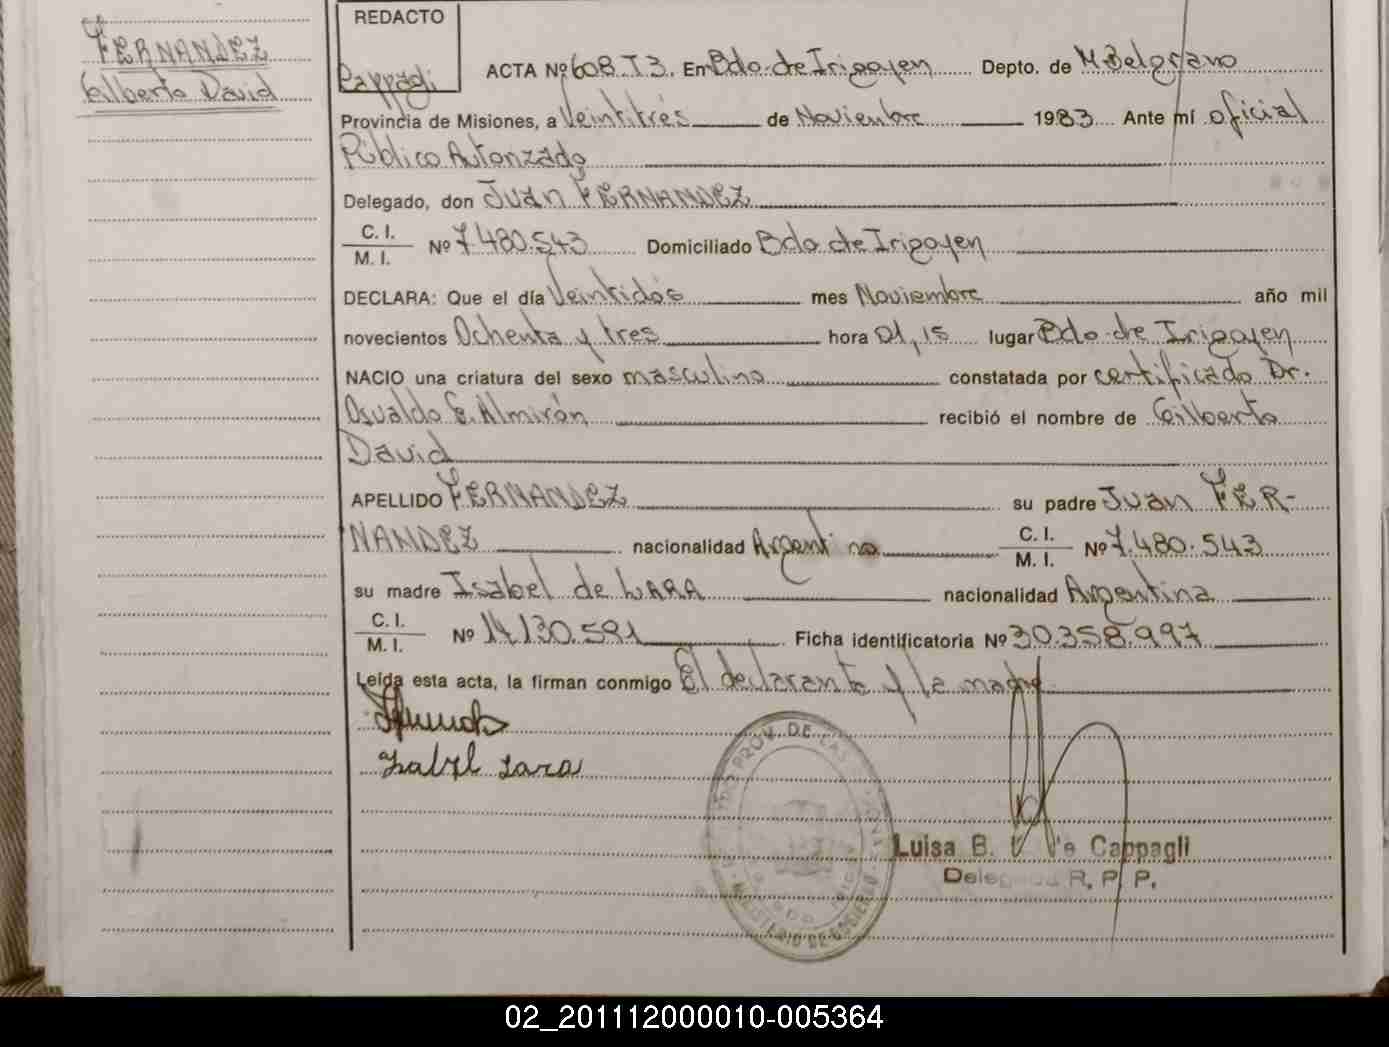 FERNANDEZ
Gilberto David
REDACTO
Cappagli
ACTA Nº 608. T 3. En Bdo. de Irigoyen Depto. de M. Belgrano
Provincia de Misiones, a Veintitrés de Noviembre 1983 Ante mí oficial
Público Autorizado
Delegado, don Juan FERNANDEZ
C. I.
M. I. Nº 7.480.543 Domiciliado Bdo. de Irigoyen
DECLARA: Que el día Veintidós mes Noviembre año mil
novecientos Ochenta y tres hora 01,15 lugar Bdo. de Irigoyen
NACIO una criatura del sexo masculino constatada por certificado Dr.
Osvaldo Almirón recibió el nombre de Gilberto
David
APELLIDO FERNANDEZ su padre Juan FER-
NANDEZ nacionalidad Argentino C. I. M. I. Nº 7.480.543
su madre Isabel de LARA nacionalidad Argentina
C. I.
M. I. Nº 14.130.591 Ficha identificatoria Nº 30.358.997
Leída esta acta, la firman conmigo El declarante y la madre
Isabel Lara
PROV. DE LAS
MINISTERIO DE GOBIERNO
Luisa B. de Cappagli
Delegada R. P. P.
02_201112000010-005364